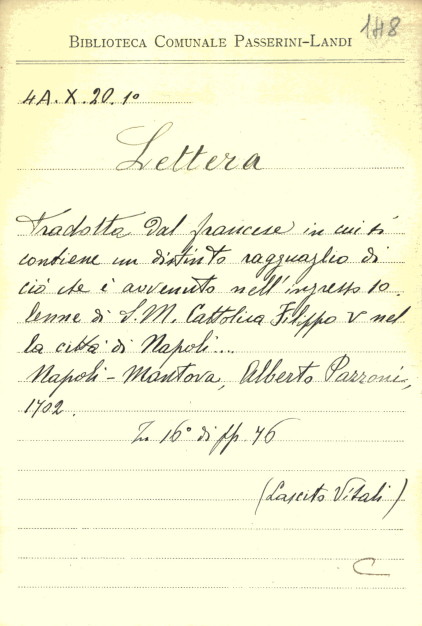 148
BIBLIOTECA COMUNALE PASSERINI-LANDI
4A.X.20.1º
Lettera
Tradotta dal francese in cui si
contiene un distinto ragguaglio di
ciò che è avvenuto nell'ingresso so
lenne di S.M. Cattolica Filippo V nel
la città di Napoli...
Napoli - Mantova, Alberto Pazzoni,
1702.
In 16º di pp. 46
(Lascito Vitali)
C